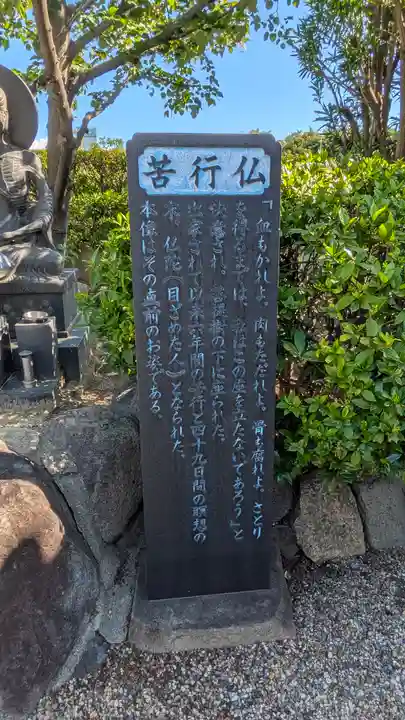 苦行仏
「血もかれよ、肉もただれよ、骨も腐れよ、さとり
を得るまでは、私はこの座を立たないであろう」と
決意され、菩提樹の下に坐られた。
出家されて以来六年間の苦行と四十九日間の瞑想の
末、仏陀（目ざめた人）となられた。
本像はその直前のお姿である。